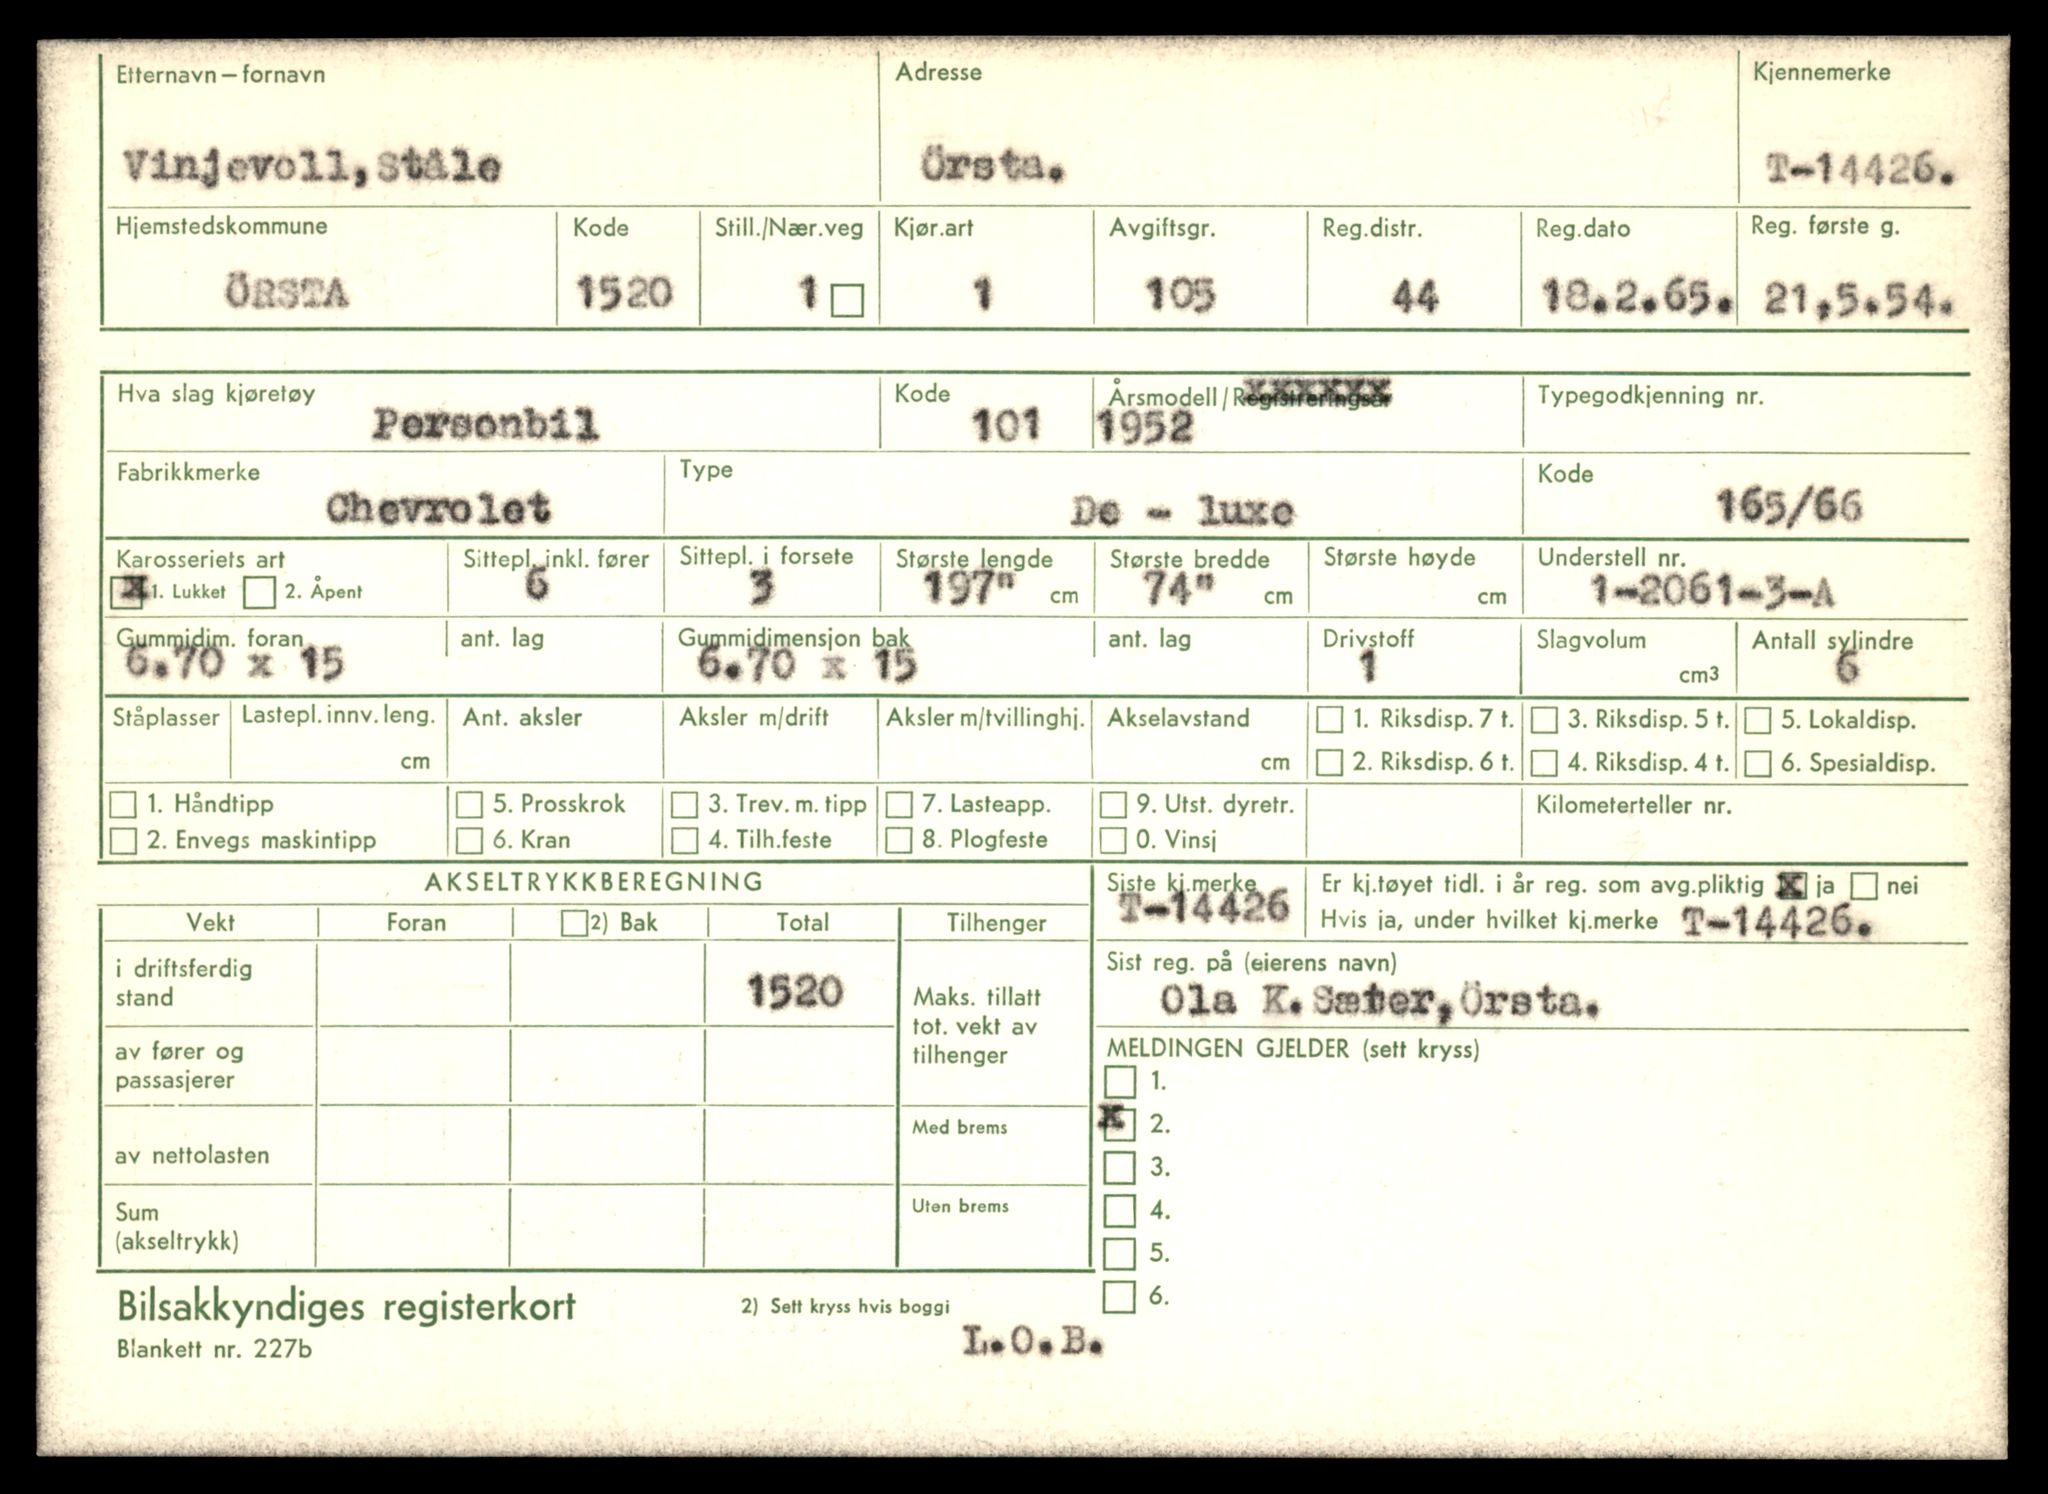 Etternavn – fornavn Adresse Kjennemerke
Vinjevoll, Ståle Örsta. T-14426.
Hjemstedskommune Kode Still./Nær.veg Kjør.art Avgiftsgr. Reg.distr. Reg.dato Reg. første g.
ÖRSTA 1520 1 1 105 44 18.2.65. 21,5.54.
Hva slag kjøretøy Kode Årsmodell/Registreringsår Typegodkjenning nr.
Personbil 101 1952
Fabrikkmerke Type Kode
Chevrolet De - luxe 165/66
Karosseriets art Sittepl. inkl. fører Sittepl. i forsete Største lengde Største bredde Største høyde Understell nr.
x 1. Lukket 2. Åpent 6 3 197" cm 74" cm cm 1-2061-3-A
Gummidim. foran ant. lag Gummidimensjon bak ant. lag Drivstoff Slagvolum Antall sylindre
6.70 x 15 6.70 x 15 1 cm3 6
Ståplasser Lastepl. innv. leng. Ant. aksler Aksler m/drift Aksler m/tvillinghj. Akselavstand 1. Riksdisp. 7 t. 3. Riksdisp. 5 t. 5. Lokaldisp.
cm cm 2. Riksdisp. 6 t. 4. Riksdisp. 4 t. 6. Spesialdisp.
1. Håndtipp 5. Prosskrok 3. Trev. m. tipp 7. Lasteapp. 9. Utst. dyretr. Kilometerteller nr.
2. Envegs maskintipp 6. Kran 4. Tilh.feste 8. Plogfeste 0. Vinsj
AKSELTRYKKBEREGNING Siste kj.merke Er kj.tøyet tidl. i år reg. som avg.pliktig x ja nei
T-14426 Hvis ja, under hvilket kj.merke T-14426.
Vekt Foran 2) Bak Total Tilhenger
i driftsferdig stand 1520
Sist reg. på (eierens navn)
Ola K. Sæter, Örsta.
Maks. tillatt tot. vekt av tilhenger
av fører og passasjerer
MELDINGEN GJELDER (sett kryss)
1.
x 2.
Med brems
av nettolasten
3.
4.
Uten brems
Sum (akseltrykk)
5.
6.
Bilsakkyndiges registerkort 2) Sett kryss hvis boggi
L.O.B.
Blankett nr. 227b